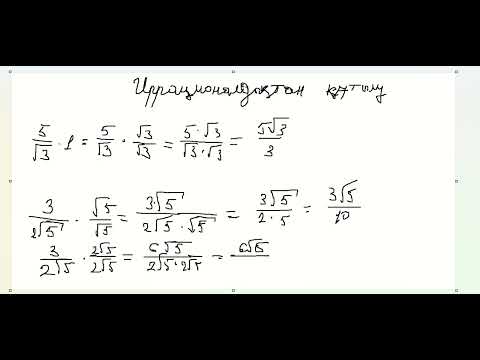 Иррационалдықтан құтылу
5/√3 · 1 = 5/√3 · √3/√3 = 5·√3/√3·√3 = 5√3/3
3/2√5 · √5/√5 = 3√5/2√5·√5 = 3√5/2·5 = 3√5/10
3/2√5 · 2√5/2√5 = 6√5/2√5·2√5 = 6√5/